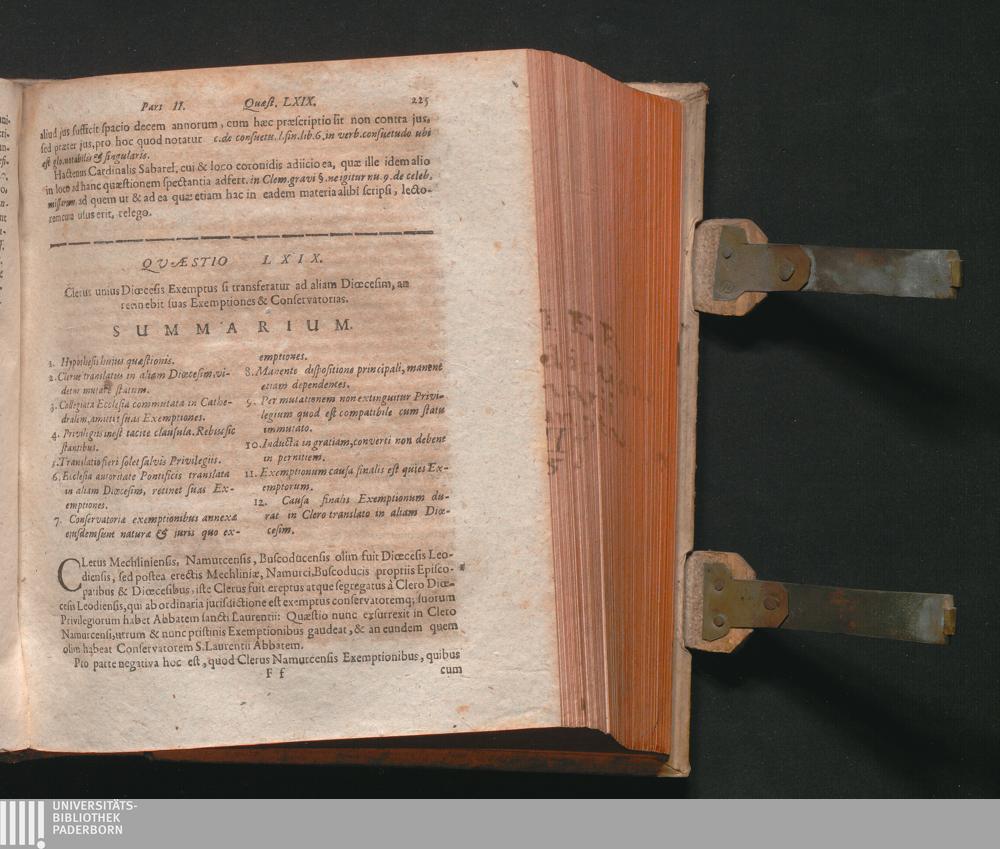 Pars II. Quæst. LXIX. 225
aliud jus sufficit spacio decem annorum, cum hæc præscriptio sit non contra jus,
sed præter jus, pro hoc quod notatur c. de consuetu. l. sin. lib. 6. in verb. consuetudo ubi
est glo. notabilis & singularis.
Hactenus Cardinalis Sabarel. cui & loco coronidis adiicio ea, quæ ille idem alio
in loco ad hanc quæstionem spectantia adfert. in Clem. gravi §. ne igitur nu. 9. de celeb.
missarum. ad quem ut & ad ea quæ etiam hac in eadem materia alibi scripsi, lecto-
rem cui usus erit, relego.
QVÆSTIO LXIX.
Clerus unius Diœcesis Exemptus si transferatur ad aliam Diœcesim, an
retinebit suas Exemptiones & Conservatorias.
SUMMARIUM.
1. Hypothesis hujus quæstionis.
2. Clerus translatus in aliam Diœcesim, vi-
detur mutare statum.
3. Collegiata Ecclesia commutata in Cathe-
dralem, amittit suas Exemptiones.
4. Privilegiis inest tacite clausula. Rebus sic
stantibus.
5. Translatio fieri solet salvis Privilegiis.
6. Ecclesia autoritate Pontificis translata
in aliam Diœcesim, retinet suas Ex-
emptiones.
7. Conservatoria exemptionibus annexæ
eiusdem sunt naturæ & juris quo ex-
emptiones.
8. Manente dispositione principali, manent
etiam dependentes.
9. Per mutationem non extinguitur Privi-
legium quod est compatibile cum statu
immutato.
10. Inducta in gratiam, converti non debent
in pernitiem.
11. Exemptionum causa finalis est quies Ex-
emptorum.
12. Causa finalis Exemptionum du-
rat in Clero translato in aliam Diœ-
cesim.
CLerus Mechliniensis, Namurcensis, Buscoducensis olim fuit Diœcesis Leo-
diensis, sed postea erectis Mechliniæ, Namurci, Buscoducis propriis Episco-
patibus & Diœcesibus, iste Clerus fuit ereptus atque segregatus à Clero Diœ-
cesis Leodiensis, qui ab ordinaria jurisdictione est exemptus conservatoremq; suorum
Privilegiorum habet Abbatem sancti Laurentii: Quæstio nunc exsurrexit in Clero
Namurcensi, utrum & nunc pristinis Exemptionibus gaudeat, & an eundem quem
olim habeat Conservatorem S. Laurentii Abbatem.
Pro parte negativa hoc est, quod Clerus Namurcensis Exemptionibus, quibus
Ff cum
UNIVERSITÄTS-
BIBLIOTHEK
PADERBORN